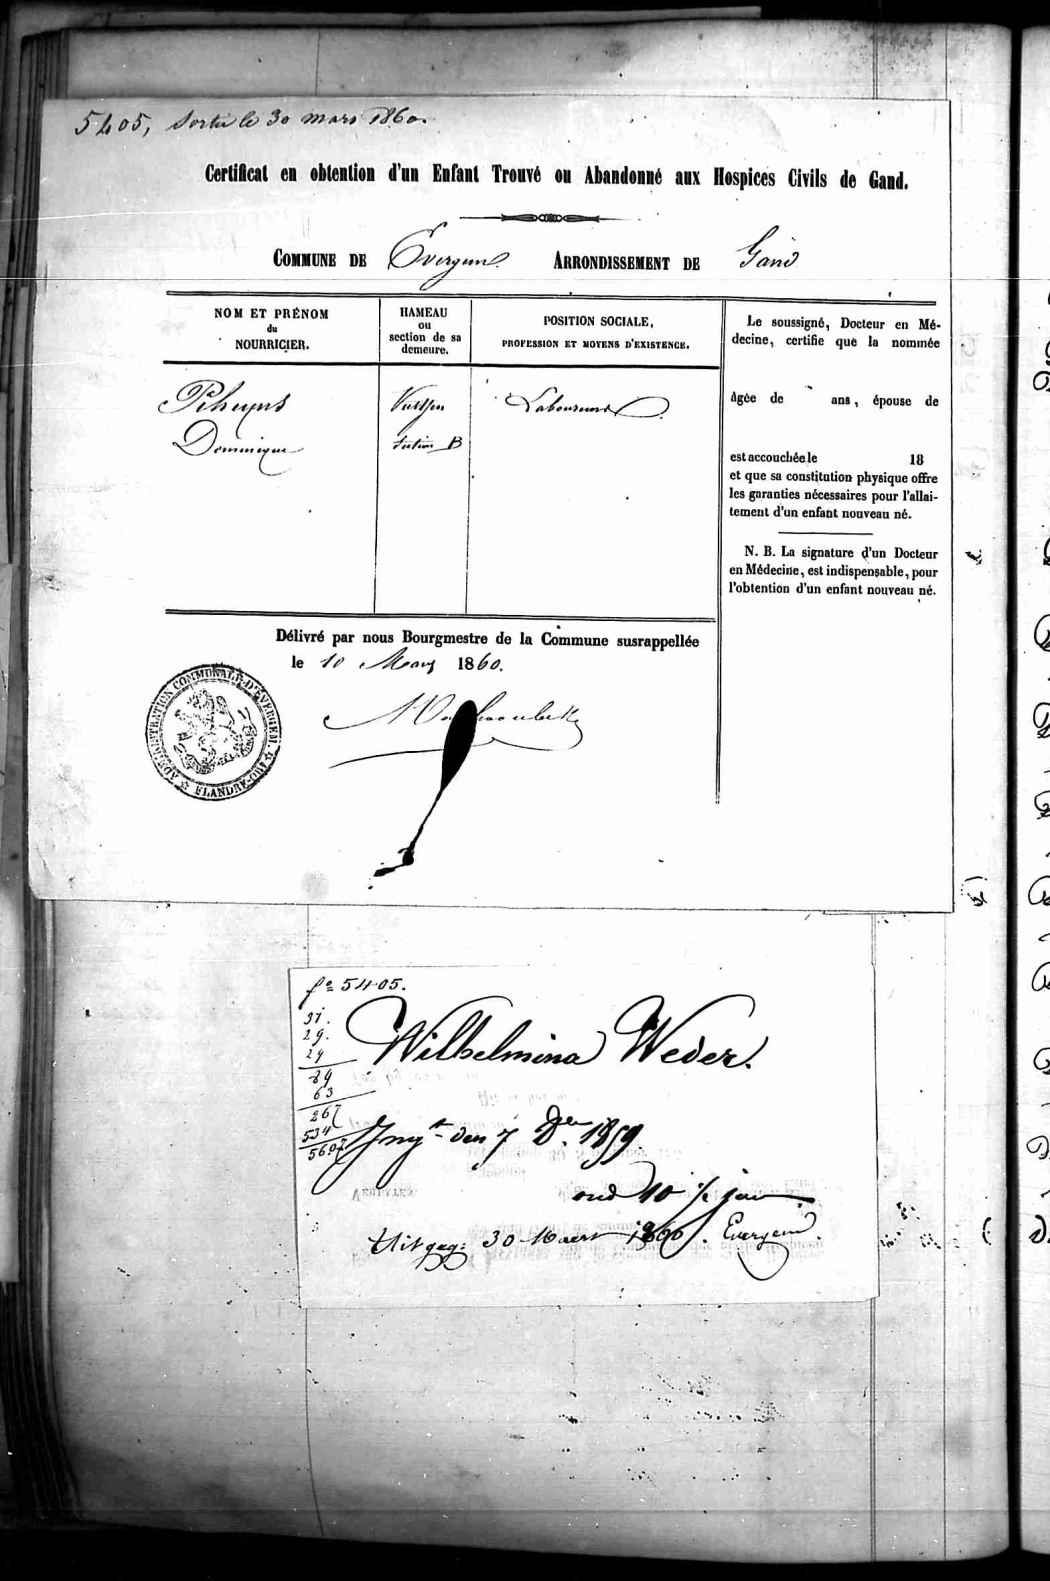 5405, Sortie le 30 mars 1860.
Certificat en obtention d'un Enfant Trouvé ou Abandonné aux Hospices Civils de Gand.
COMMUNE DE Evergem ARRONDISSEMENT DE Gand
NOM ET PRÉNOM
du
NOURRICIER.
HAMEAU
ou
section de sa
demeure.
POSITION SOCIALE,
PROFESSION ET MOYENS D'EXISTENCE.
Dominique
Section B
Laboureur
Le soussigné, Docteur en Mé-
decine, certifie que la nommée
âgée de ans, épouse de
est accouchée le 18
et que sa constitution physique offre
les garanties nécessaires pour l'allai-
tement d'un enfant nouveau né.
N. B. La signature d'un Docteur
en Médecine, est indispensable, pour
l'obtention d'un enfant nouveau né.
Délivré par nous Bourgmestre de la Commune susrappellée
le 10 Mars 1860.
ADMINISTRATION COMMUNALE D'EVERGEM
FLANDRE-ORI
fo 5405.
31.
29.
29
89
63
267
534
5607
Wilhelmina Weder.
Ingt den 7 Der 1859
oud 10 1/2 jaar
Uitgeg: 30 Maert 1860. Evergem.